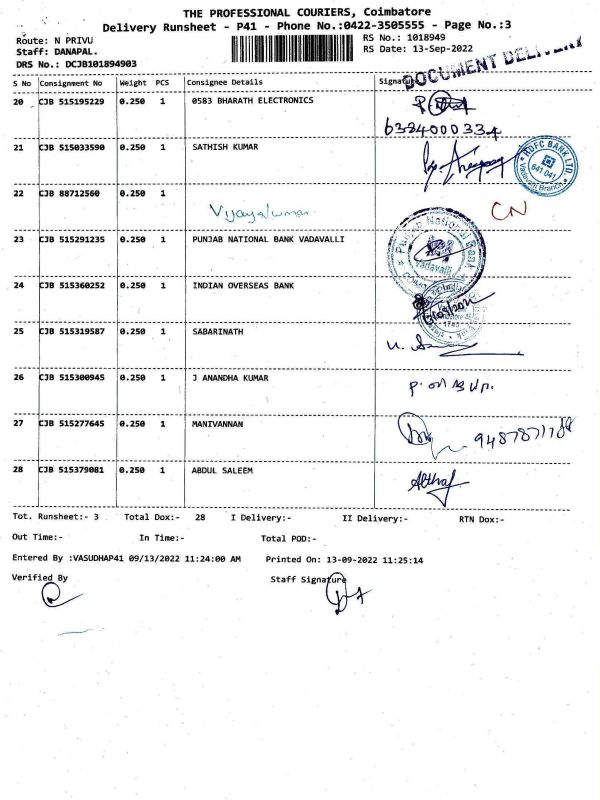 THE PROFESSIONAL COURIERS, Coimbatore
Delivery Runsheet - P41 - Phone No.:0422-3505555 - Page No.:3
Route: N PRIVU
RS No.: 1018949
Staff: DANAPAL.
RS Date: 13-Sep-2022
DRS No.: DCJB101894903
DOCUMENT DELIVERY
S No Consignment No Weight PCS Consignee Details Signature
20 CJB 515195229 0.250 1 0583 BHARATH ELECTRONICS
6384000334
21 CJB 515033590 0.250 1 SATHISH KUMAR
HDFC BANK LTD.
641 041
Vadavalli Branch
22 CJB 88712560 0.250 1
Vijayakumar
CN
23 CJB 515291235 0.250 1 PUNJAB NATIONAL BANK VADAVALLI
Punjab National Bank
Vadavalli
24 CJB 515360252 0.250 1 INDIAN OVERSEAS BANK
25 CJB 515319587 0.250 1 SABARINATH
26 CJB 515300945 0.250 1 J ANANDHA KUMAR
27 CJB 515277645 0.250 1 MANIVANNAN
28 CJB 515379081 0.250 1 ABDUL SALEEM
Althaf
Tot. Runsheet:- 3 Total Dox:- 28 I Delivery:- II Delivery:- RTN Dox:-
Out Time:- In Time:- Total POD:-
Entered By :VASUDHAP41 09/13/2022 11:24:00 AM Printed On: 13-09-2022 11:25:14
Verified By Staff Signature